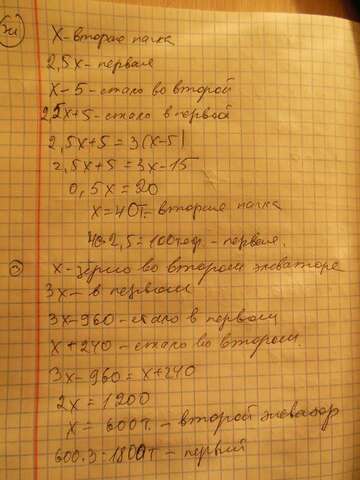 х-вторая пачка
2,5х-первая
х-5-стало во второй
2,5х+5-стало в первой
2,5х+5=3(х-5)
2,5х+5=3х-15
0,5х=20
х=40т.-вторая пачка
40·2,5=100тетр.-первая.
х-зерно во втором элеваторе
3х-в первом
3х-960-стало в первом
х+240-стало во втором.
3х-960=х+240
2х=1200
х=600т.-второй элеватор
600·3=1800т-первый